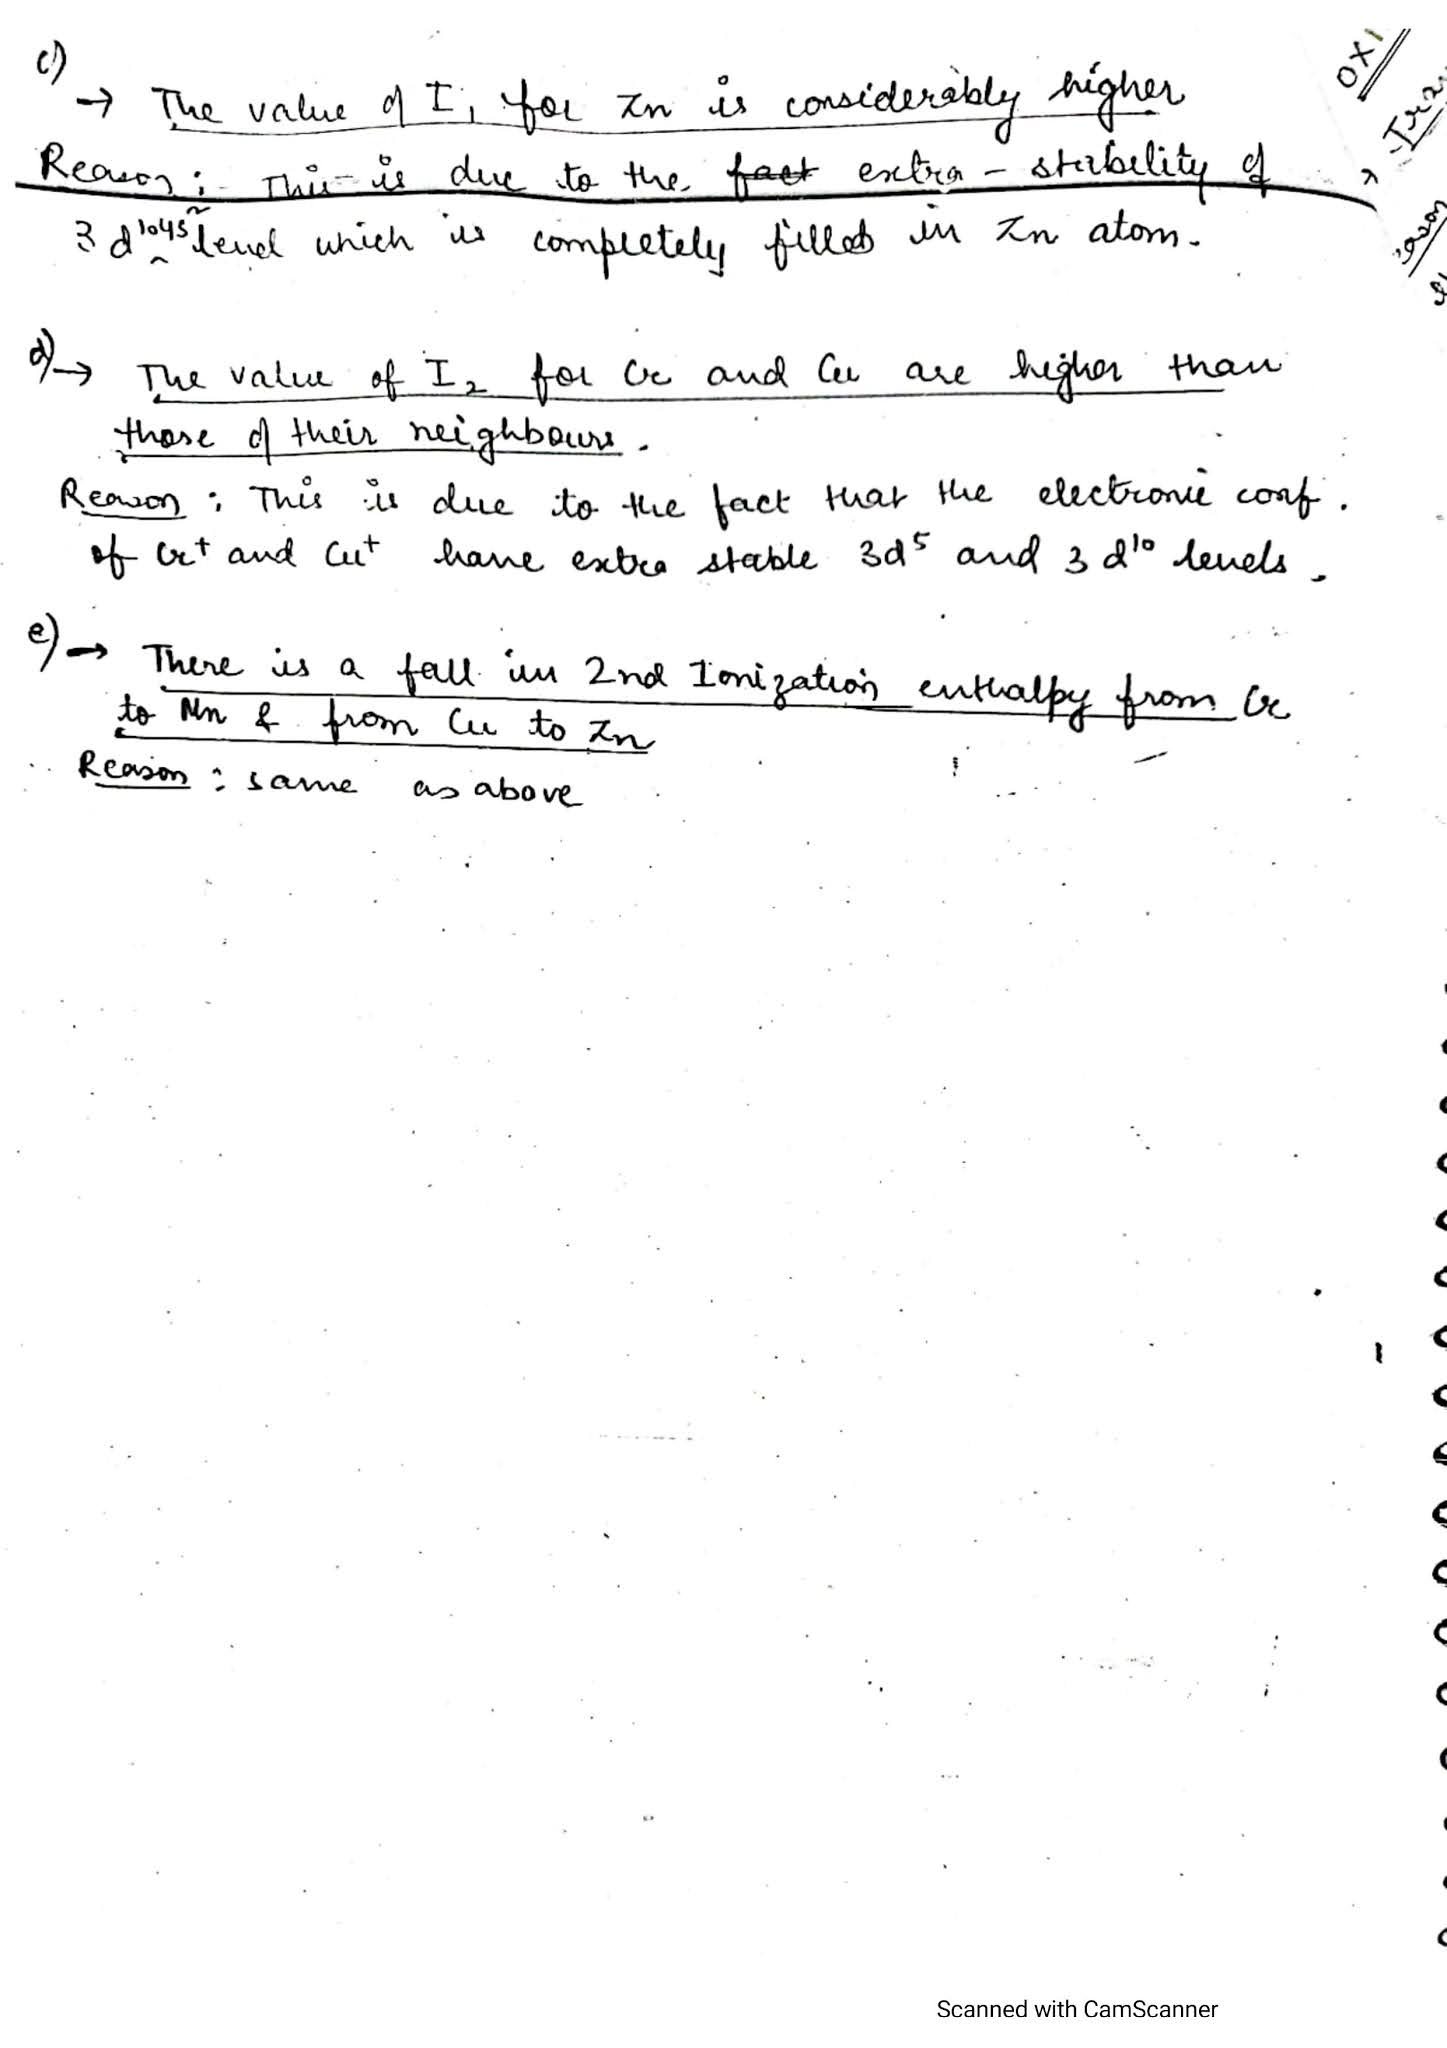 c)
→ The value of I₁ for Zn is considerably higher
Reason : This is due to the fact extra - stability of
3d¹⁰4s² level which is completely filled in Zn atom.
d) → The value of I₂ for Cr and Cu are higher than
those of their neighbours.
Reason : This is due to the fact that the electronic conf.
of Cr⁺ and Cu⁺ have extra stable 3d⁵ and 3d¹⁰ levels.
e) → There is a fall in 2nd Ionization enthalpy from Cr
to Mn & from Cu to Zn
Reason : same as above
OXI
Scanned with CamScanner